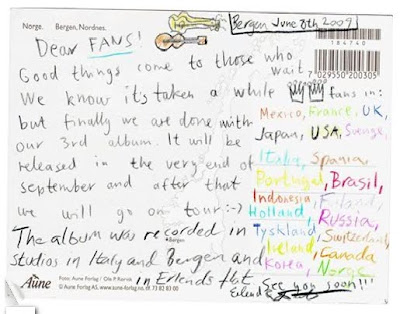 Norge. Bergen, Nordnes.
Bergen June 8th 2009
184740
Dear FANS!
Good things come to those who wait
7029550200305
We know it's taken a while
fans in:
but finally we are done with
our 3rd album. It will be
released in the very end of
september and after that
we will go on tour :-)
The album was recorded in
Bergen
studios in Italy and Bergen and
in Erlends flat.
Mexico, France, UK,
Japan, USA, Sverige,
Italia, Spania,
Portugal, Brasil,
Indonesia, Finland,
Holland, Russia,
Tyskland, Switzerland,
Ireland, Canada
Korea, Norge
See you soon!!!
Eirik &
Aune
Foto: Aune Forlag / Ole P. Rørvik
© Aune Forlag AS, www.aune-forlag.no, tlf. 73 82 83 00